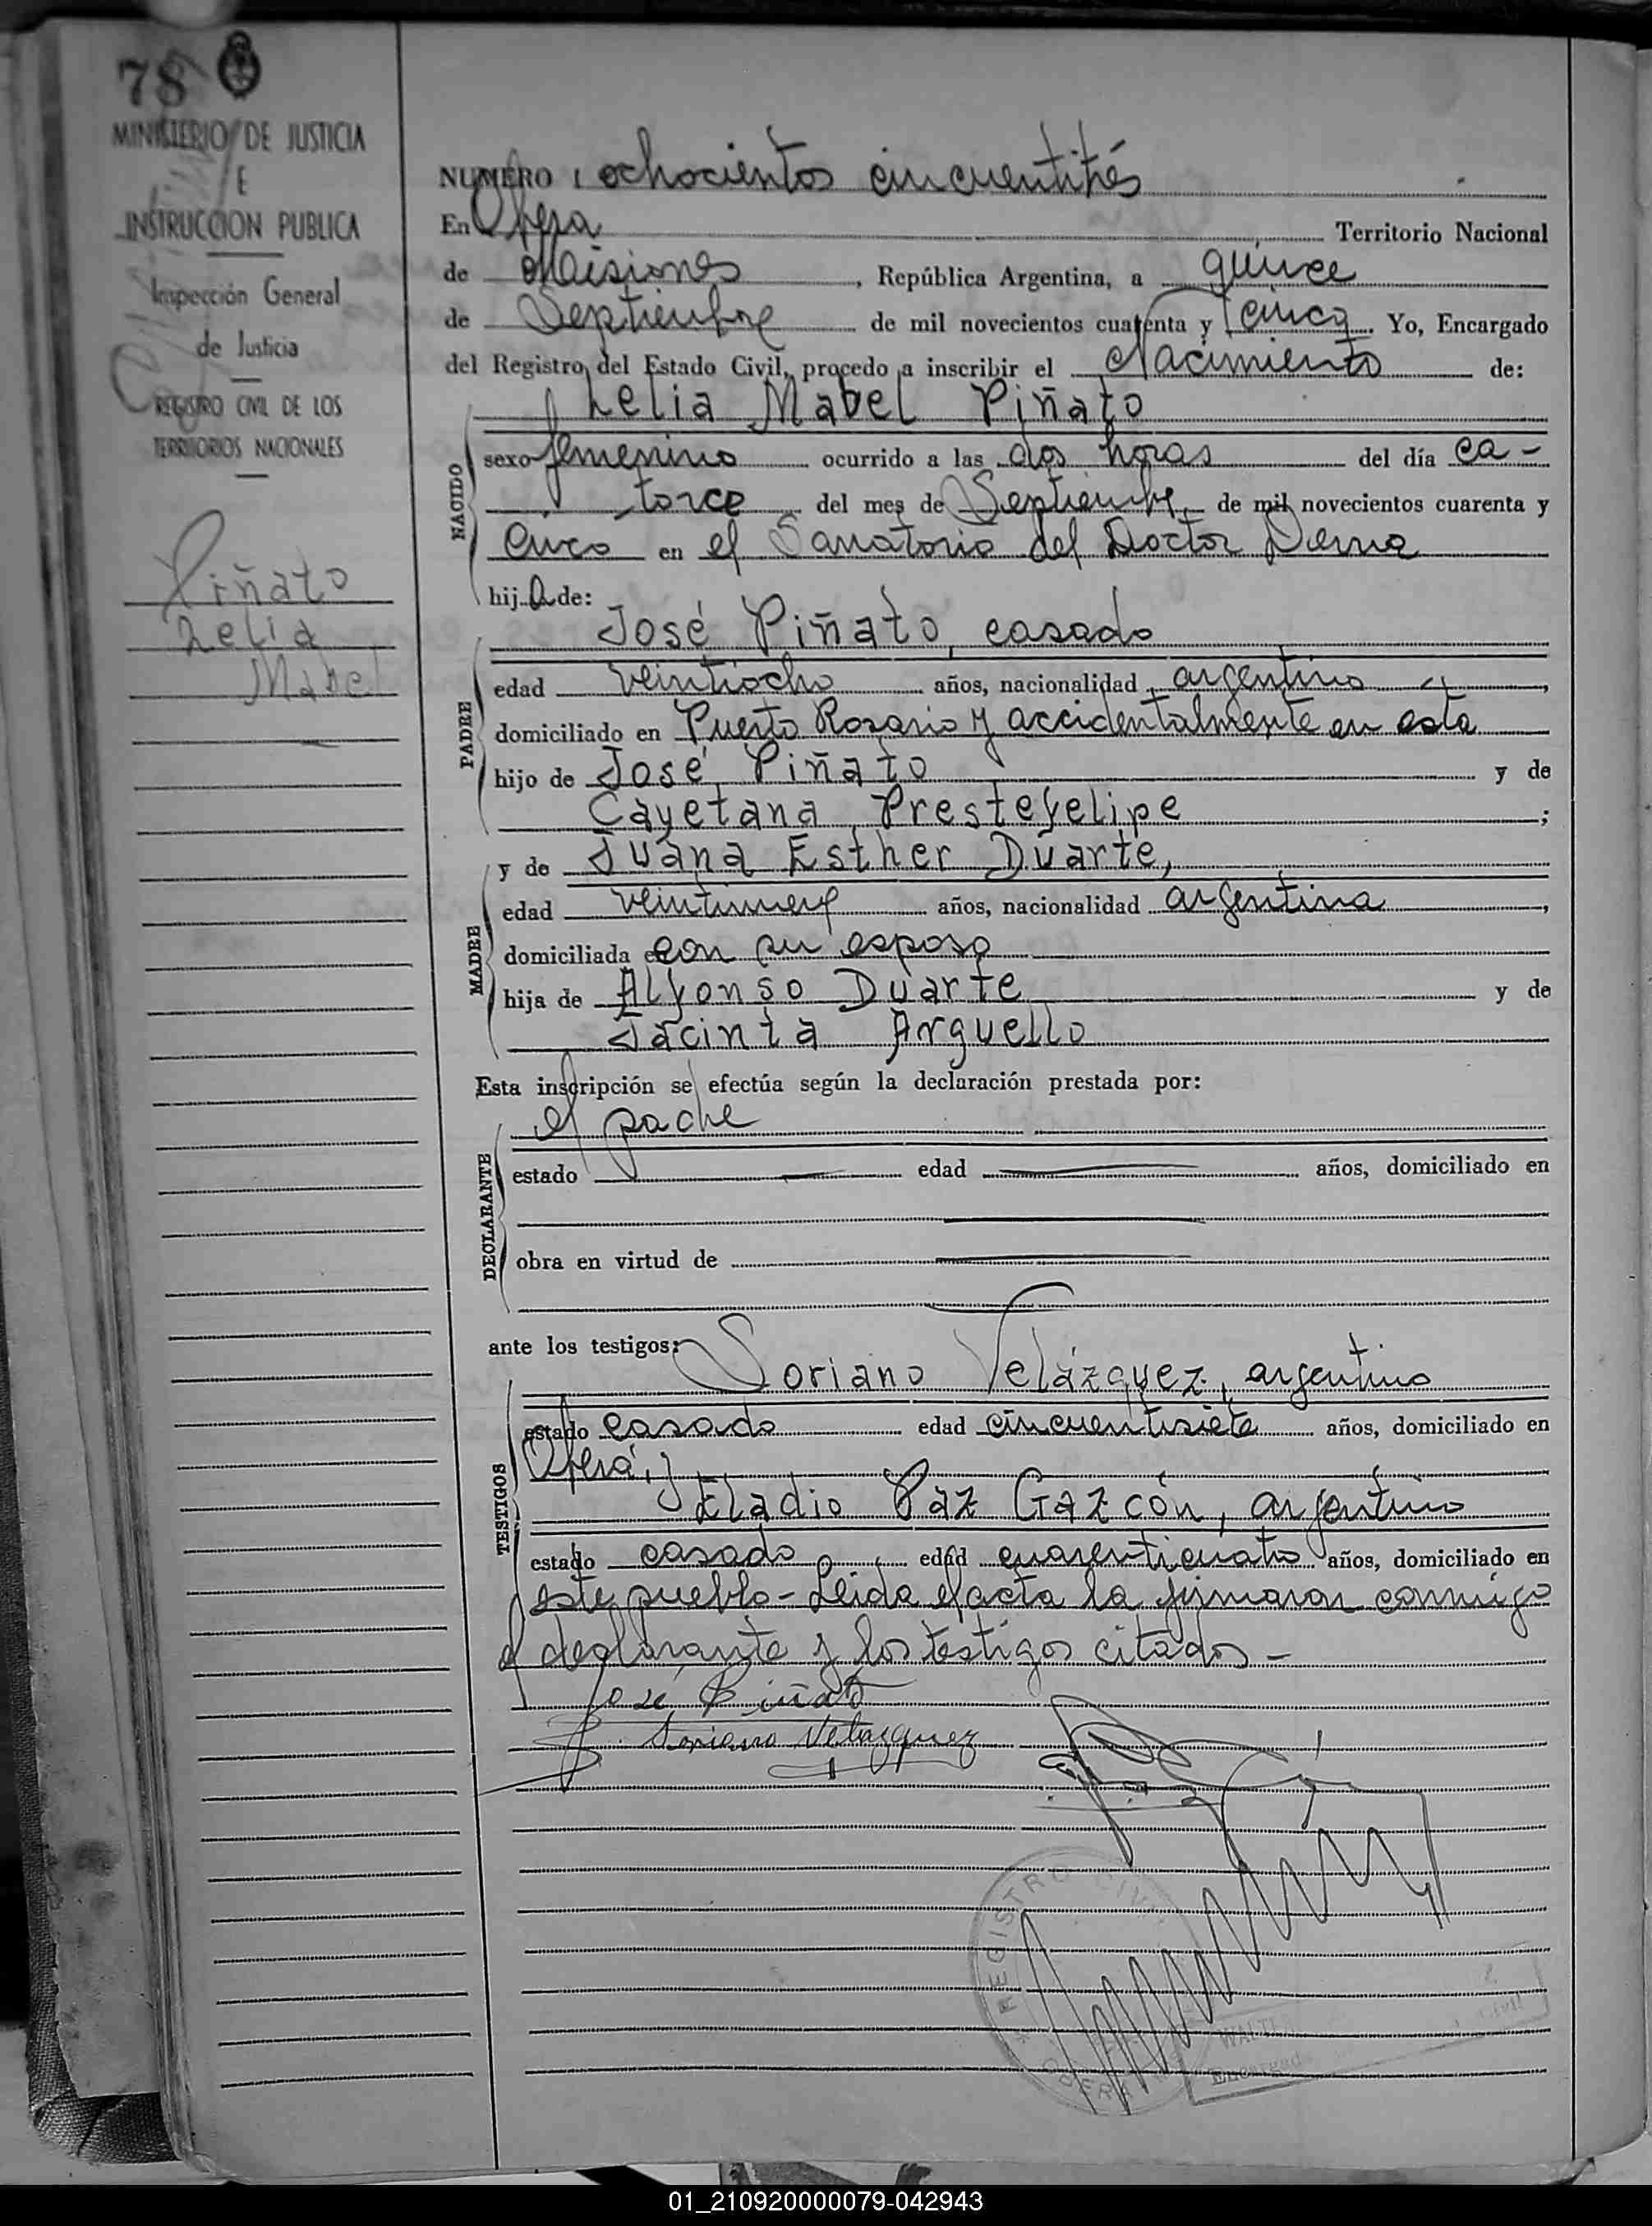 78
MINISTERIO DE JUSTICIA
E
INSTRUCCION PUBLICA
Inspección General
de Justicia
REGISTRO CIVIL DE LOS
TERRITORIOS NACIONALES
Piñato
Lelia
Mabel
NUMERO : ochocientos cincuentitrés
En Oberá Territorio Nacional
de Misiones, República Argentina, a quince
de Septiembre de mil novecientos cuarenta y cinco. Yo, Encargado
del Registro del Estado Civil, procedo a inscribir el Nacimiento de:
Lelia Mabel Piñato
NACIDO
sexo femenino ocurrido a las dos horas del día ca-
torce del mes de Septiembre de mil novecientos cuarenta y
cinco en el Sanatorio del Doctor
hija de:
José Piñato, casado
PADRE
edad veintiocho años, nacionalidad argentino,
domiciliado en Puerto Rosario y accidentalmente en esta
hijo de José Piñato y de
Cayetana Prestefelipe ;
y de Juana Esther Duarte,
MADRE
edad veintinueve años, nacionalidad argentina,
domiciliada con su esposo
hija de Alfonso Duarte y de
Jacinta Arguello
Esta inscripción se efectúa según la declaración prestada por:
el padre
DECLARANTE
estado edad años, domiciliado en
obra en virtud de
ante los testigos:
Soriano Velázquez, argentino
TESTIGOS
estado casado edad cincuentisiete años, domiciliado en
Oberá, y
Eladio Paz Gazcón, argentino
estado casado, edad cuarenticuatro años, domiciliado en
este pueblo - Leida el acta la firmaron conmigo
el declarante y los testigos citados -
José Piñato
Soriano Velazquez
REGISTRO CIVIL
OBERA
WALTE
Encargad
Civil
01_210920000079-042943